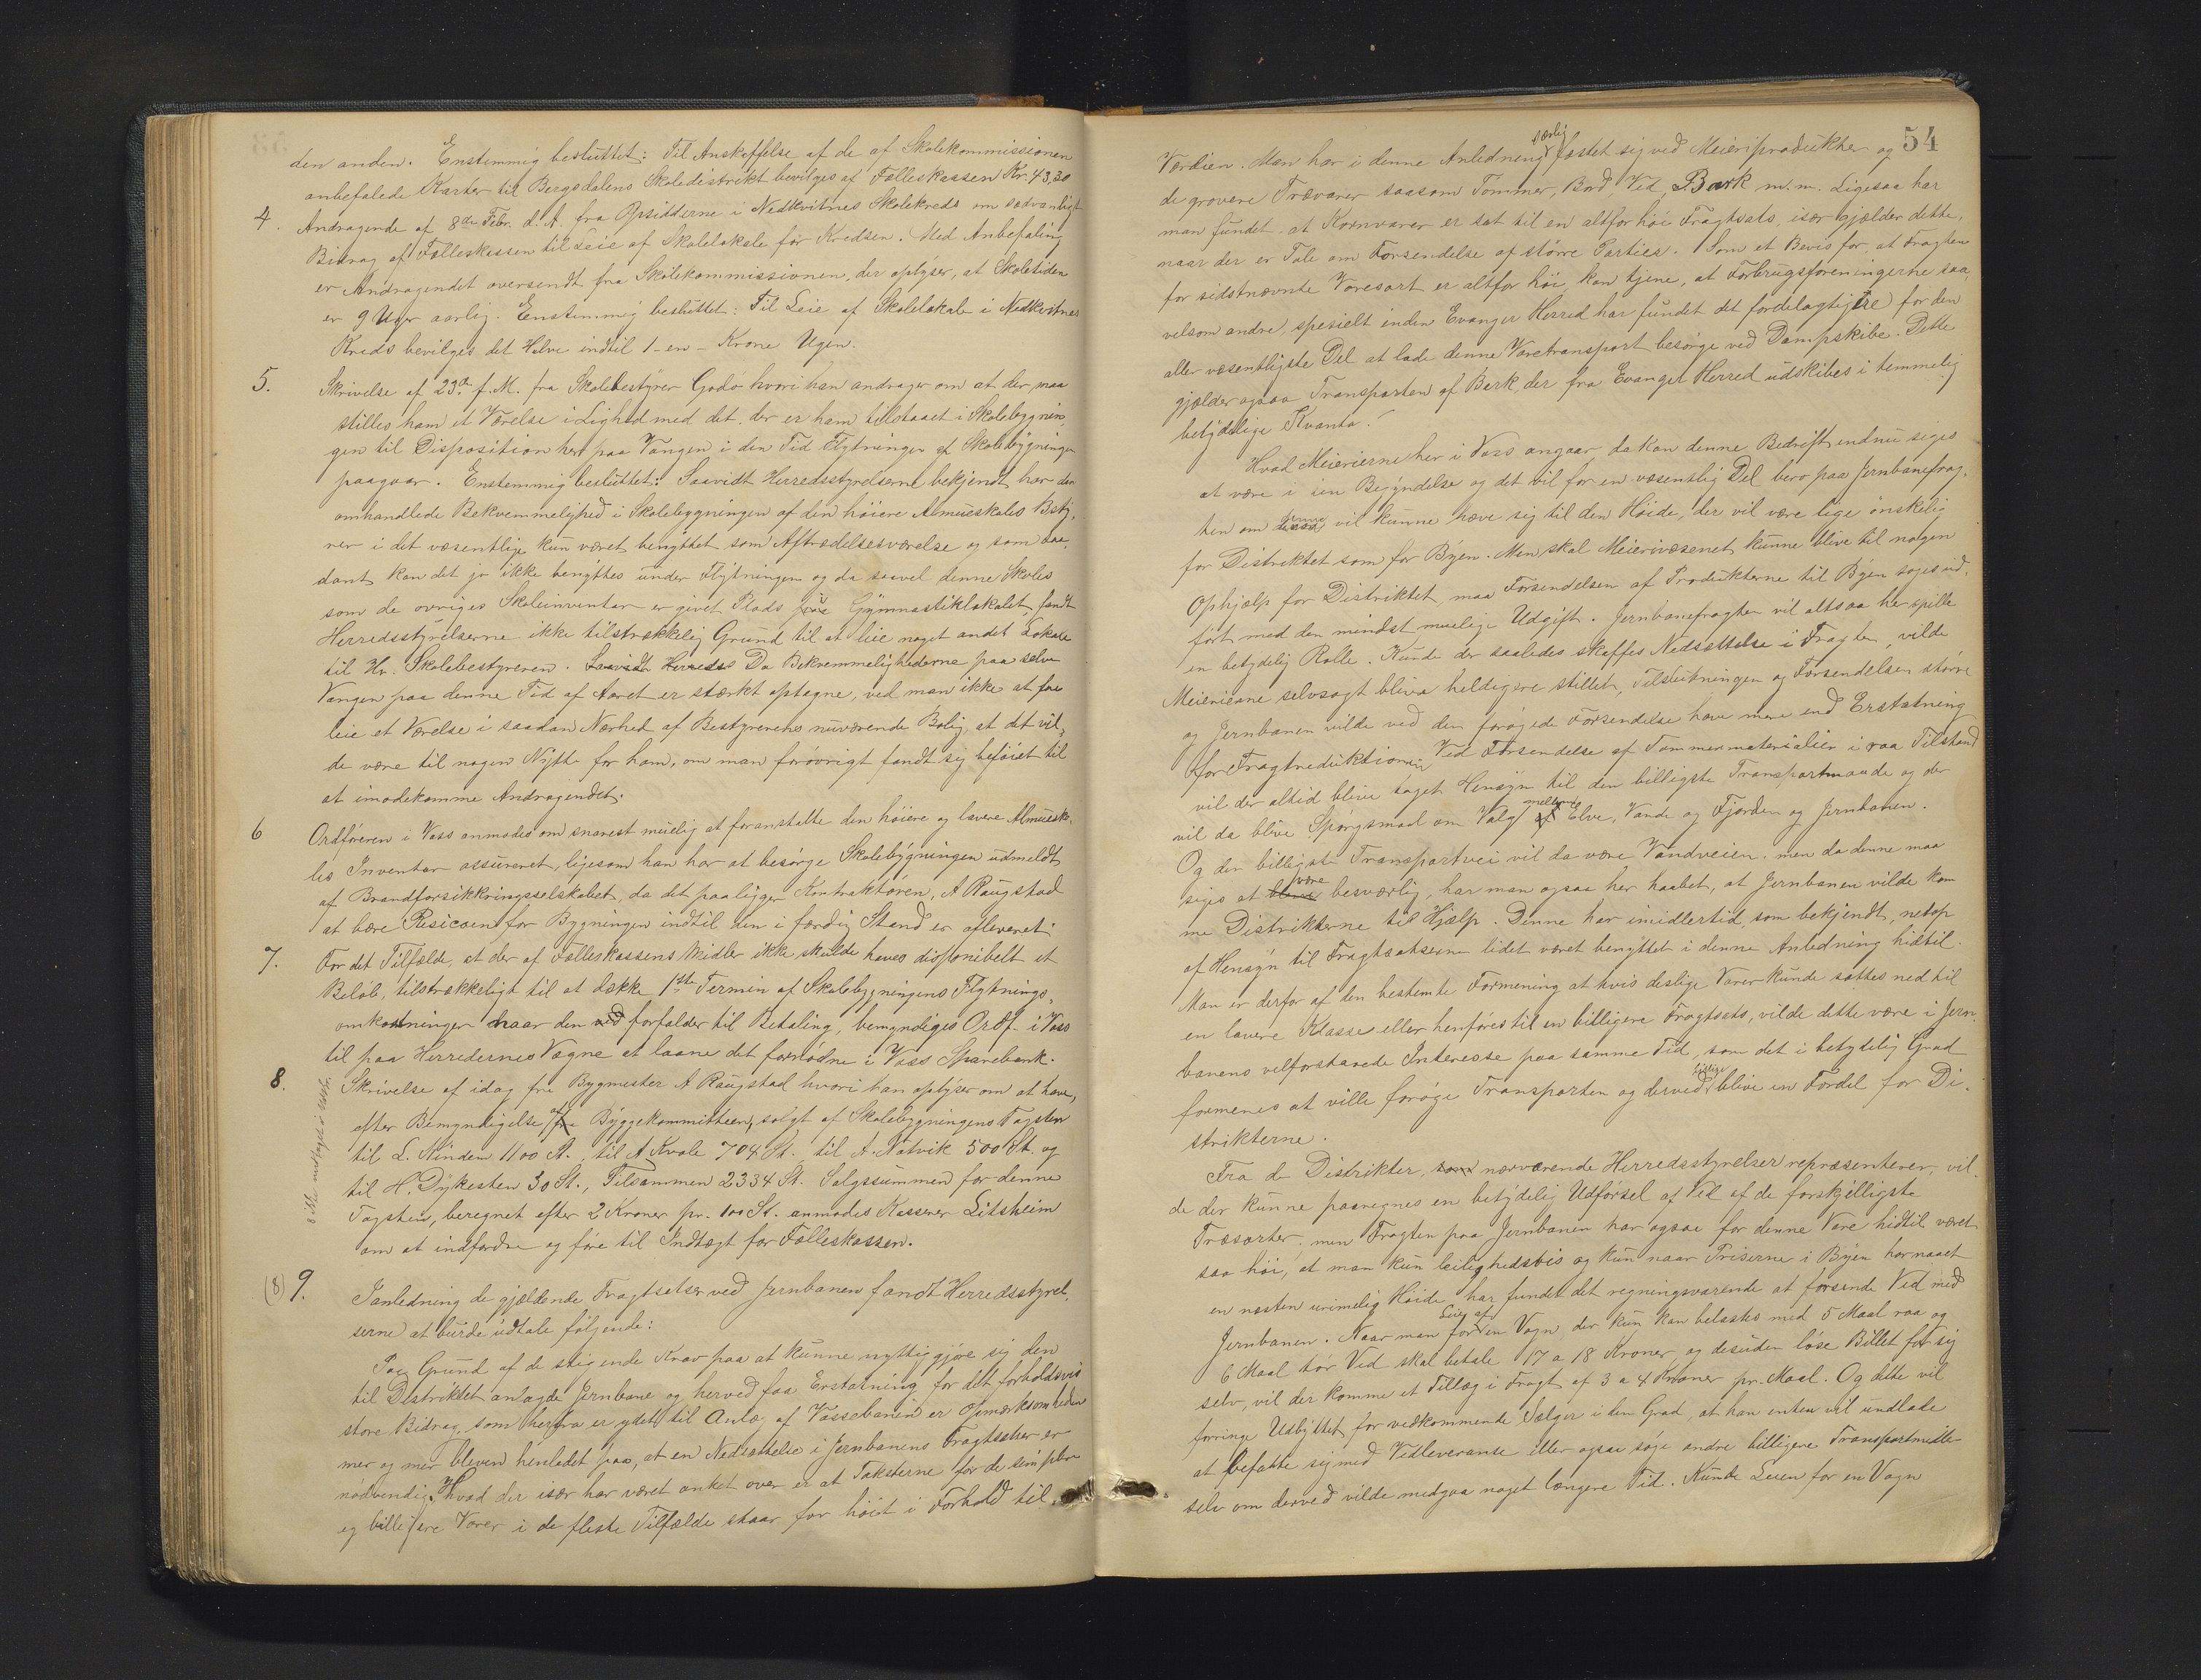 den anden. Enstemmig besluttet: Til Anskaffelse af de af Skolekommissionen
anbefalede Karter til Bergsdalens Skoledistrikt bevilges af Fælleskassen Kr. 43,30
4. Andragende af 8de Febr. d. A. fra Opsidderne i Nedkvitnes Skolekreds om sædvanligt
Bidrag af Fælleskassen til Leie af Skolelokale før Kredsen. Med Anbefaling
er Andragendet oversendt fra Skolekommissionen, der oplyser, at Skoletiden
er 9 Uger aarlig. Enstemmig besluttet: Til Leie af Skolelokale i Nedkvitnes
Kreds bevilges det Halve indtil 1 - en - Krone Ugen.
5. Skrivelse af 23de f. M. fra Skolebestyrer Godø hvori han andrager om at der maa
stilles ham et Værelse i Lighed med det, der er ham tilstaaet i Skolebygnin¬
gen til Disposition her paa Vangen i den Tid Flytningen af Skolebygningen
paagaar. Enstemmig besluttet: Saavidt Herredsstyrelserne bekjendt har den
omhandlede Bekvemmelighed i Skolebygningen af den høiere Almueskoles Besty¬
rer i det væsentlige kun været benyttet som Aftrædelsesværelse og som saa¬
dant kan det jo ikke benyttes under Flytningen og da saavel denne Skoles
som de øvriges Skoleinventar er givet Plads i Gymnastiklokalet, fandt
Herredsstyrelserne ikke tilstrækkelig Grund til at leie noget andet Lokale
til Hr. Skolebestyreren. Saavidt Herreds Da Bekvemmelighederne paa selve
Vangen paa denne Tid af Aaret er stærkt optagne, ved man ikke at faa
leie et Værelse i saadan Nærhed af Bestyrerens nuværende Bolig, at det vil¬
de være til nogen Nytte for ham, om man forøvrigt fandt sig beføiet til
at imødekomme Andragendet.
6 Ordføreren i Voss anmodes om snarest muelig at foranstalte den høiere og lavere Almuesko¬
les Inventar assureret, ligesom han har at besørge Skolebygningen udmeldt
af Brandforsikkringsselskabet, da det paaligger Kontraktøren, A Raugstad
at bære Risicoen for Bygningen indtil den i færdig Stand er afleveret.
7. For det Tilfælde, at der af Fælleskassens Midler ikke skulde haves disponibelt et
Beløb, tilstrækkeligt til at dække 1ste Termin af Skolebygningens Flytnings¬
omkostninger naar den ved forfalder til Betaling, bemyndiges Ordf. i Voss
til paa Herredernes Vegne at laane det fornødne i Voss Sparebank.
8. Skrivelse af idag fra Bygmester A Raugstad hvori han oplyser om at have,
efter Bemyndigelse af Byggekommitteen, solgt af Skolebygningens Tagsten
til L. Ninden 1100 St., til A Kvale 704 St., til A. Nætvik 500 St. og
til H. Dykesten 30 St., Tilsammen 2334 St. Salgssummen for denne
Tagsten, beregnet efter 2 Kroner pr. 100 St. anmodes Kasserer Litsheim
om at indfordre og føre til Indtægt for Fælleskassen.
(8) 9. Ianledning de gjældende Fragtsatser ved Jernbanen fandt Herredsstyrel¬
serne at burde udtale følgende:
Paa Grund af de stigende Krav paa at kunne nyttiggjøre sig den
til Distriktet anlagde Jernbane og herved faa Erstatning for det forholdsvis
store Bidrag, som herfra er ydet til Anlæg af Vossebanen er Opmærksomheden
mer og mer bleven henledet paa, at en Nedsættelse i Jernbanens Fragtsatser er
nødvendig. Hvad der især har været anket over er at Taksterne for de simplere
og billigere Varer i de fleste Tilfælde staar for høit i Forhold til
54
særlig
Værdien. Man har i denne Anledning fæstet sig ved Meieriprodukter og
de grovere Trævarer saasom Tømmer, Bord, Ved, Bark m.m. Ligesaa har
man fundet at Kornvarer er sat til en altfor høi Fragtsats, især gjælder dette,
naar der er Tale om Forsendelse af større Partier. Som et Bevis for, at Fragten
for sidstnævnte Varesort er altfor høi, kan tjene, at Forbrugsforeningerne saa¬
velsom andre, spesielt inden Evanger Herred har fundet det fordelagtigere for den
aller væsentligste Del at lade denne Varetransport besørge ved Dampskibe. Dette
gjælder ogsaa Transporten af Bark, der fra Evanger Herred udskibes i temmelig
betydelige Kvanta.
Hvad Meierierne her i Voss angaar, da kan denne Bedrift endnu siges
at være i sin Begyndelse og det vil for en væsentlig Del bero paa Jernbanefrag¬
ten om denne vil kunne hæve sig til den Høide, der vil være lige ønskelig
for Distriktet som for Byen. Men skal Meierivæsenet kunne blive til nogen
Ophjælp for Distriktet, maa Forsendelsen af Produkterne til Byen søges ud¬
ført med den mindst muelige Udgift. Jernbanefragten vil altsaa her spille
en betydelig Rolle. Kunde der saaledes skaffes Nedsættelse i Fragten, vilde
Meierierne selvsagt blive heldigere stillet, Tilslutningen og Forsendelsen større
og Jernbanen vilde ved den forøgede Forsendelse have mere end Erstatning
for Fragtreduktionen. Ved Forsendelse af Tømmermaterialier i raa Tilstand
vil der altid blive taget Hensyn til den billigste Transportmaade og der
vil da blive Spørgsmaal om Valg mellem Elve, Vande og Fjorden og Jernbanen.
Og den billigste Transportvei vil da være Vandveien, men da denne maa
siges at være besværlig, har man ogsaa her haabet, at Jernbanen vilde kom
me Distrikterne til Hjælp. Denne har imidlertid, som bekjendt, netop
af Hensyn til Fragtsatserne lidet været benyttet i denne Anledning hidtil.
Man er derfor af den bestemte Formening at hvis deslige Varer kunde sættes ned til
en lavere Klasse eller henføres til en billigere Fragtsats, vilde dette være i Jern¬
banens velforstaaede Interesse paa samme Tid, som det i betydelig Grad
formenes at ville forøge Transporten og derved blive en Fordel for Di¬
strikterne.
Fra de Distrikter, som nærværende Herredsstyrelser repræsenterer, vil¬
de der kunne paaregnes en betydelig Udførsel af Ved af de forskjelligste
Træsorter, men Fragten paa Jernbanen har ogsaa for denne Vare hidtil været
saa høi, at man kun leilighedsvis og kun naar Priserne i Byen har naaet
en næsten urimelig Høide, har fundet det regningsvarende at forsende Ved med
Jernbanen. Naar man for Leie af en Vogn, der kun kan belastes med 5 Maal raa og
6 Maal tør Ved skal betale 17 a 18 Kroner, og desuden løse Billet for sig
selv, vil der komme et Tillæg i Fragt af 3 a 4 Kroner pr. Maal. Og dette vil
forringe Udbyttet for vedkommende Sælger i den Grad, at han enten vil undlade
at befatte sig med Vedleveranse eller ogsaa søge andre billigere Transportmidler
selv om derved vilde medgaa noget længere Tid. Kunde Leien for en Vogn